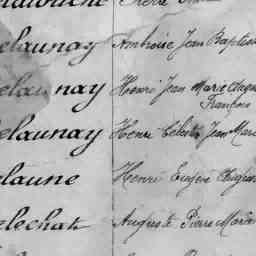 elaunay Ambroise Jean Baptis
elaunay Henri Jean Marie Augu
François
elaunay Henri Célestin Jean Mar
elaune Henri Eugène Augus
elechat Auguste Pierre Marie